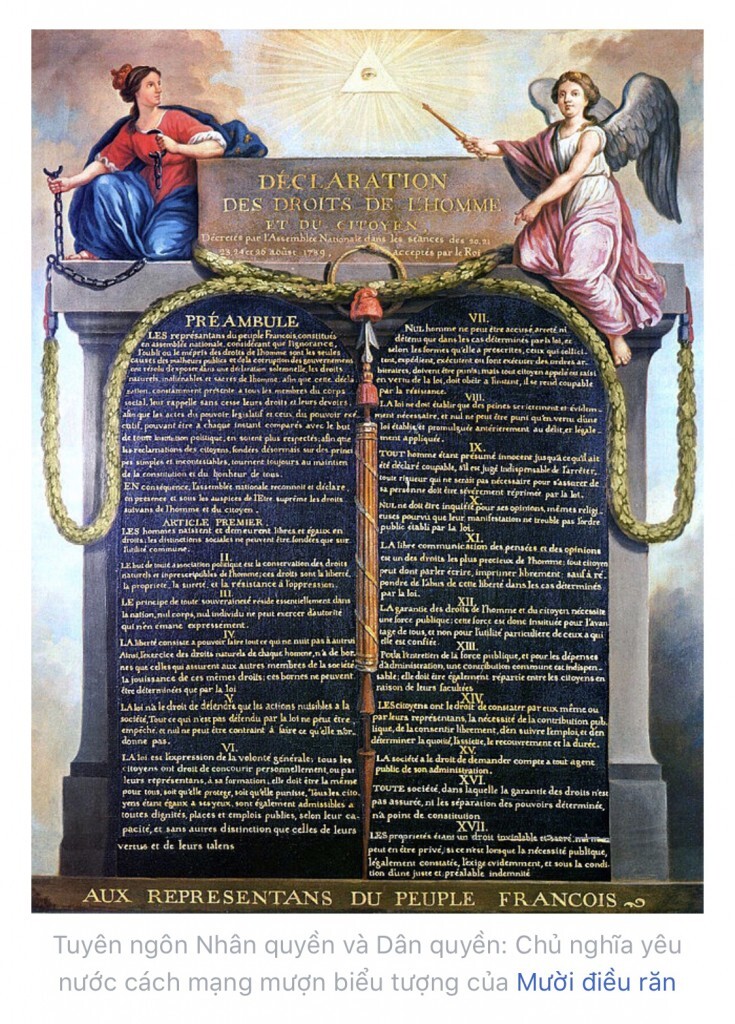 DÉCLARATION
DES DROITS DE L'HOMME
ET DU CITOYEN,
Décretés par l'Assemblée Nationale dans les séances des 20, 21
23, 24 et 26 août 1789, acceptés par le Roi
PRÉAMBULE
LES représantans du peuple Francois, constitués
en assemblée nationale, considérant que l'ignorance,
l'oubli ou le mépris des droits de l'homme sont les seules
causes des malheurs publics et de la corruption des gouvernemens
ont résolu d'exposer dans une déclaration solemnelle, les droits
naturels, inaliénables et sacrés de l'homme; afin que cette décla
ration, constamment présente a tous les membres du corps
social, leur rappelle sans cesse leurs droits et leurs devoirs;
afin que les actes du pouvoir législatif et ceux du pouvoir exé
cutif, pouvant être a chaque instant comparés avec le but
de toute institution politique, en soient plus respectés; afin que
les reclamations des citoyens, fondées désormais sur des princi
pes simples et incontestables, tournent toujours au maintien
de la constitution et du bonheur de tous.
EN conséquence, l'assemblée nationale reconnoit et déclare,
en presence et sous les auspices de l'Etre suprême les droits
suivans de l'homme et du citoyen.
ARTICLE PREMIER.
LES hommes naissent et demeurent libres et égaux en
droits; les distinctions sociales ne peuvent être fondées que sur
l'utilité commune.
II.
LE but de toute association politique est la conservation des droits
naturels et inprescriptibles de l'homme; ces droits sont la liberté,
la proprieté, la sureté, et la résistance à l'oppression.
III.
LE principe de toute souveraineté réside essentiellement dans
la nation, nul corps, nul individu ne peut exercer d'autorité
qui n'en émane expressément.
IV.
LA liberté consiste a pouvoir faire tout ce qui ne nuit pas à autrui
Ainsi, l'exercice des droits naturels de chaque homme, n'a de bor-
nes que celles qui assurent aux autres membres de la société
la jouissance de ces mêmes droits; ces bornes ne peuvent
être déterminées que par la loi
V.
LA loi n'a le droit de défendre que les actions nuisibles à la
société. Tout ce qui n'est pas défendu par la loi ne peut être
empêché, et nul ne peut être contraint à faire ce qu'elle n'or-
donne pas.
VI.
LA loi est l'expression de la volonté générale; tous les
citoyens ont droit de concourir personnellement, ou par
leurs représentans, à sa formation; elle doit être la même
pour tous, soit qu'elle protege, soit qu'elle punisse. Tous les cito
yens étant égaux à ses yeux, sont également admissibles à
toutes dignités, places et emplois publics, selon leur ca-
pacité, et sans autres distinction que celles de leurs
vertus et de leurs talens
VII.
NUL homme ne peut être accusé, arreté ni
détenu que dans les cas déterminés par la loi, et
selon les formes qu'elle a prescrites, ceux qui sollici-
tent, expédient, exécutent ou font exécuter des ordres ar-
bitraires, doivent être punis; mais tout citoyen appelé ou saisi
en vertu de la loi, doit obéir a l'instant, il se rend coupable
par la résistance.
VIII.
LA loi ne doit établir que des peines strictement et évidem-
ment nécessaire, et nul ne peut être puni qu'en vertu d'une
loi établie et promulguée antérierement au délit, et légale-
ment appliquée.
IX.
TOUT homme étant présumé innocent jusqu'a ce qu'il ait
été déclaré coupable, s'il est jugé indispensable de l'arrêter,
toute rigueur qui ne serait pas nécessaire pour s'assurer de
sa personne doit être sévèrement réprimée par la loi.
X.
NUL ne doit être inquiété pour ses opinions, mêmes religi-
euses pourvu que leur manifestation ne trouble pas l'ordre
public établi par la loi.
XI.
LA libre communication des pensées et des opinions
est un des droits les plus precieux de l'homme; tout citoyen
peut donc parler, écrire, imprimer librement; sauf à ré-
pondre de l'abus de cette liberté dans les cas déterminés
par la loi.
XII.
LA garantie des droits de l'homme et du citoyen nécessite
une force publique; cette force est donc instituée pour l'avan-
tage de tous, et non pour l'utilité particuliere de ceux a qui
elle est confiée.
XIII.
Pour l'entretien de la force publique, et pour les dépenses
d'administration, une contribution commune est indispen-
sable; elle doit être également répartie entre les citoyens en
raison de leurs facultées
XIV.
LES citoyens ont le droit de constater par eux même ou
par leurs représentans, la nécessité de la contribution pub-
lique, de la consentir librement, d'en suivre l'emploi, et d'en
déterminer la quotité, l'assiette, le recouvrement et la durée.
XV.
LA société a le droit de demander compte a tout agent
public de son administration.
XVI.
TOUTE société, dans laquelle la garantie des droits n'est
pas assurée, ni les séparation des pouvoirs déterminée,
n'a point de constitution
XVII.
LES proprietés étant un droit inviolable et sacré, nul ne
peut en être privé, si ce n'est lorsque la nécessité publique,
légalement constatée, l'exige evidemment, et sous la condi-
tion d'une juste et préalable indemnité
AUX REPRESENTANS DU PEUPLE FRANCOIS
Tuyên ngôn Nhân quyền và Dân quyền: Chủ nghĩa yêu
nước cách mạng mượn biểu tượng của Mười điều răn